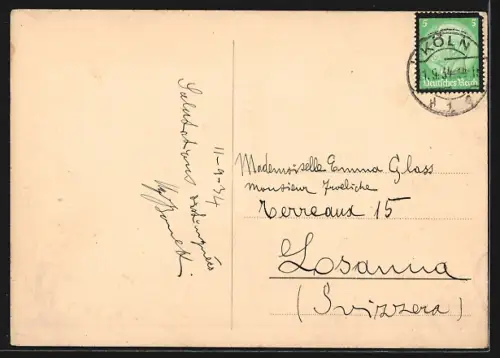 11-9-34
Salutations distinguées
KÖLN
5 5
Deutsches Reich
Mademoiselle Emma Glass
Monsieur
Terreaux 15
Losanna
(Svizzera)